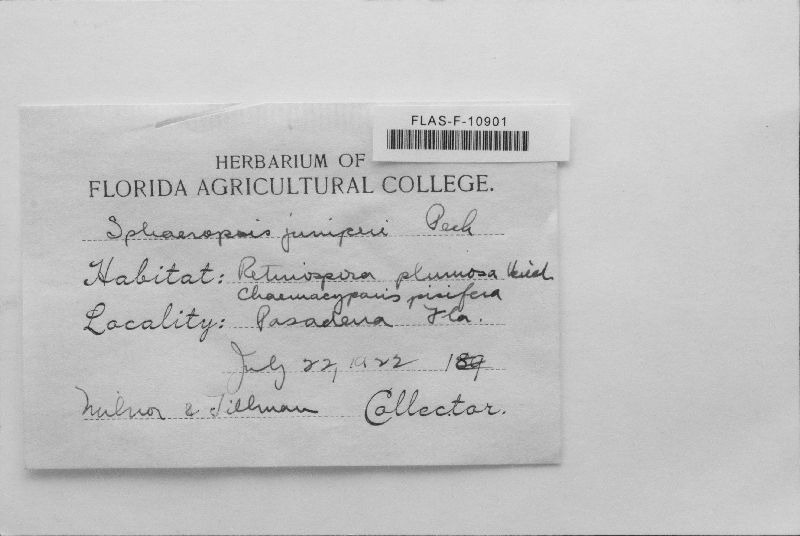 FLAS-F-10901
HERBARIUM OF
FLORIDA AGRICULTURAL COLLEGE.
Sphaeropsis juniperi Peck
Habitat: Retinispora plumosa
Chaemacyparis pisifera
Locality: Pasadena Fla.
July 22, 1922 189
Milnor & Tillman Collector.